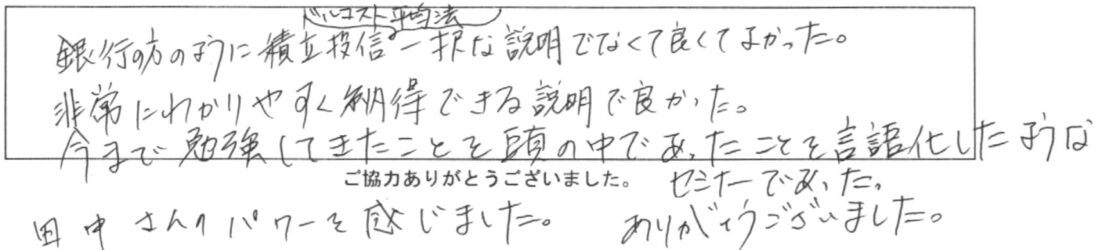 ドルコスト平均法
銀行の方のように積立投信一択な説明でなくて良くてよかった。
非常にわかりやすく納得できる説明で良かった。
今まで勉強してきたことを頭の中であったことを言語化したような
ご協力ありがとうございました。 セミナーであった。
田中さんのパワーを感じました。 ありがとうございました。